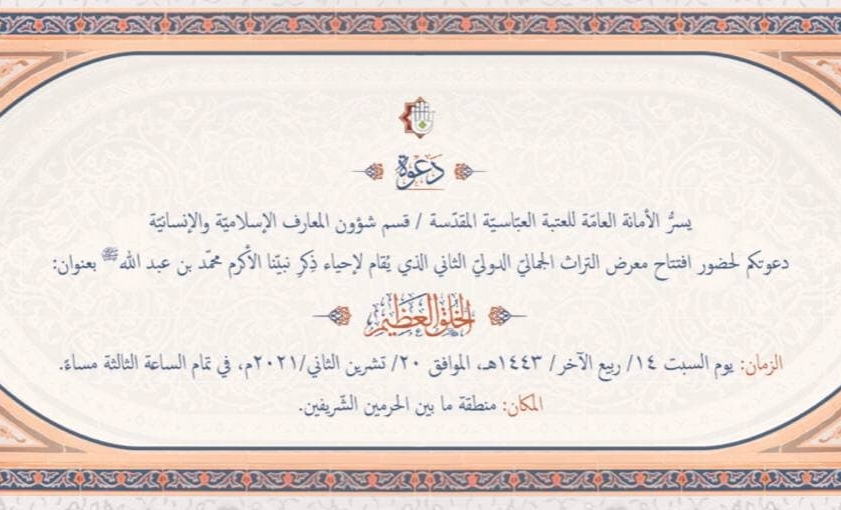 دَعوَة
يسرُّ الأمانة العامّة للعتبة العبّاسيّة المقدّسة / قسم شؤون المعارف الإسلاميّة والإنسانيّة
دعوتكم لحضور افتتاح معرض التراث الجماليّ الدوليّ الثاني الذي يُقام لإحياء ذِكرِ نبيّنا الأكرم محمّد بن عبد الله ﷺ بعنوان:
الخُلُق العَظِيم
الزمان: يوم السبت ١٤/ ربيع الآخر/ ١٤٤٣هـ، الموافق ٢٠/ تشرين الثاني/٢٠٢١م، في تمام الساعة الثالثة مساءً.
المكان: منطقة ما بين الحرمين الشّريفين.